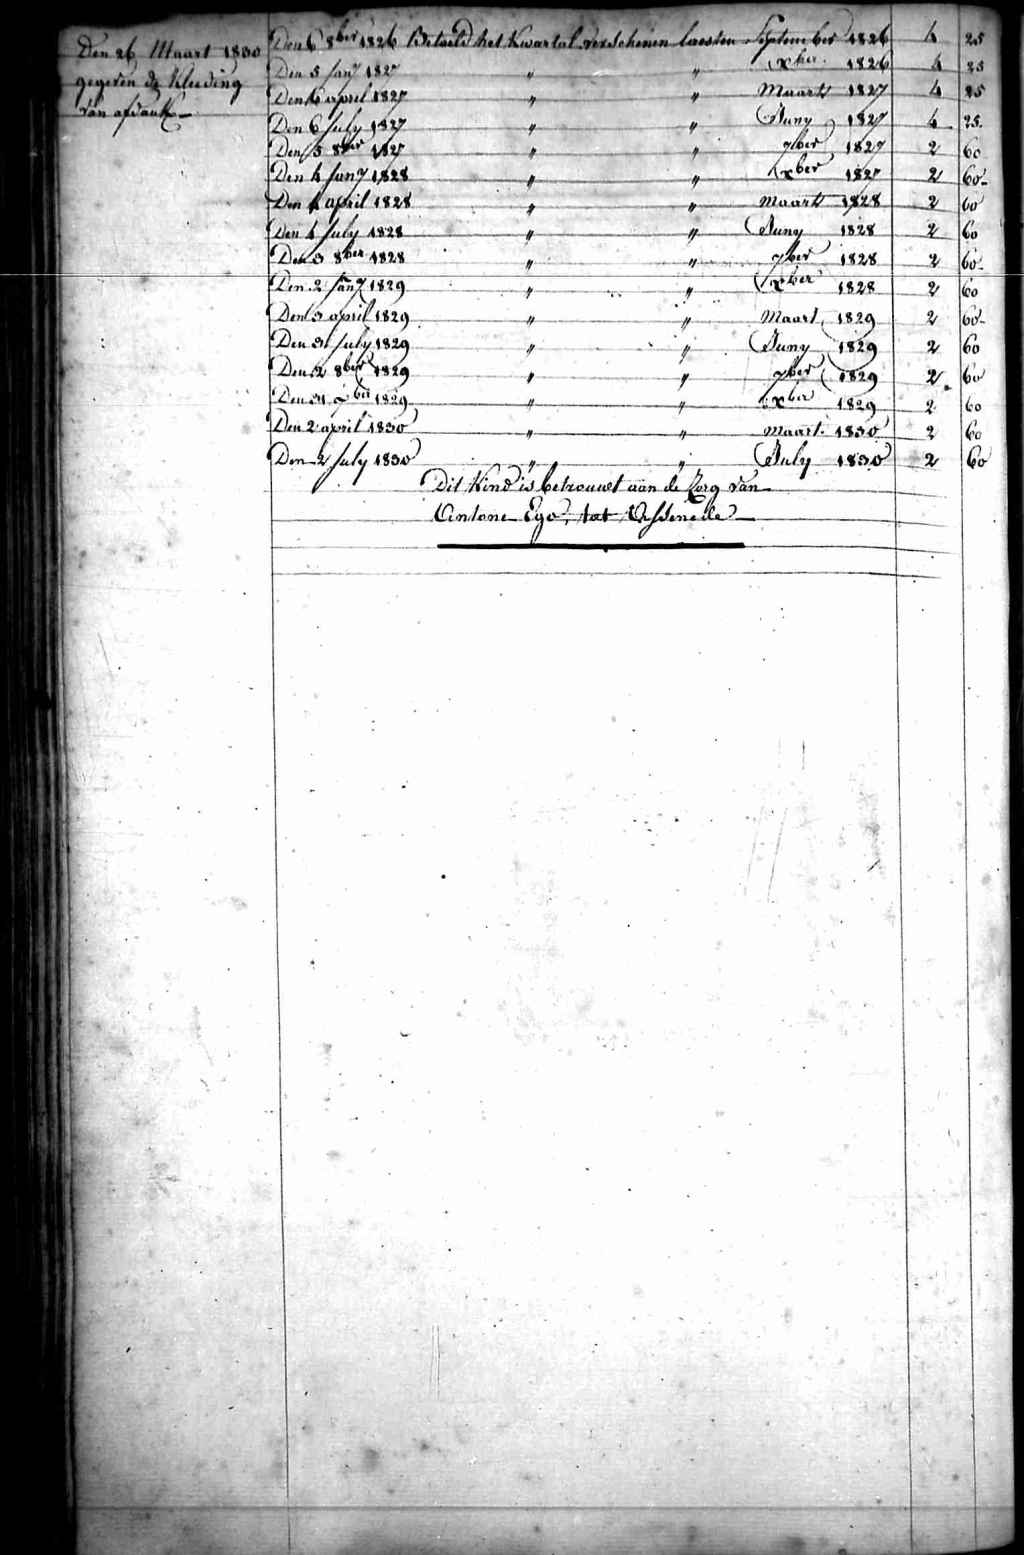 Den 26 Maart 1830
gegeven de kleeding
van afdank
Den 6 8ber 1826 Betaeld het Kwartal verschenen laesten September 1826 4 25
Den 5 Jany 1827 " " xber 1826 4 25
Den 6 april 1827 " " Maart 1827 4 25
Den 6 July 1827 " " Juny 1827 4 25
Den 5 8ber 1827 " " 7ber 1827 2 60
Den 4 Jany 1828 " " xber 1827 2 60
Den 4 april 1828 " " Maart 1828 2 60
Den 4 July 1828 " " Juny 1828 2 60
Den 3 8ber 1828 " " 7ber 1828 2 60
Den 2 Jany 1829 " " xber 1828 2 60
Den 3 april 1829 " " Maart 1829 2 60
Den 3 July 1829 " " Juny 1829 2 60
Den 2 8ber 1829 " " 7ber 1829 2 60
Den 31 xber 1829 " " xber 1829 2 60
Den 2 april 1830 " " Maart 1830 2 60
Den 2 July 1830 " " July 1830 2 60
Dit Kind is betrouwt aan de Zorg van
Antone Ego, tot Assenede